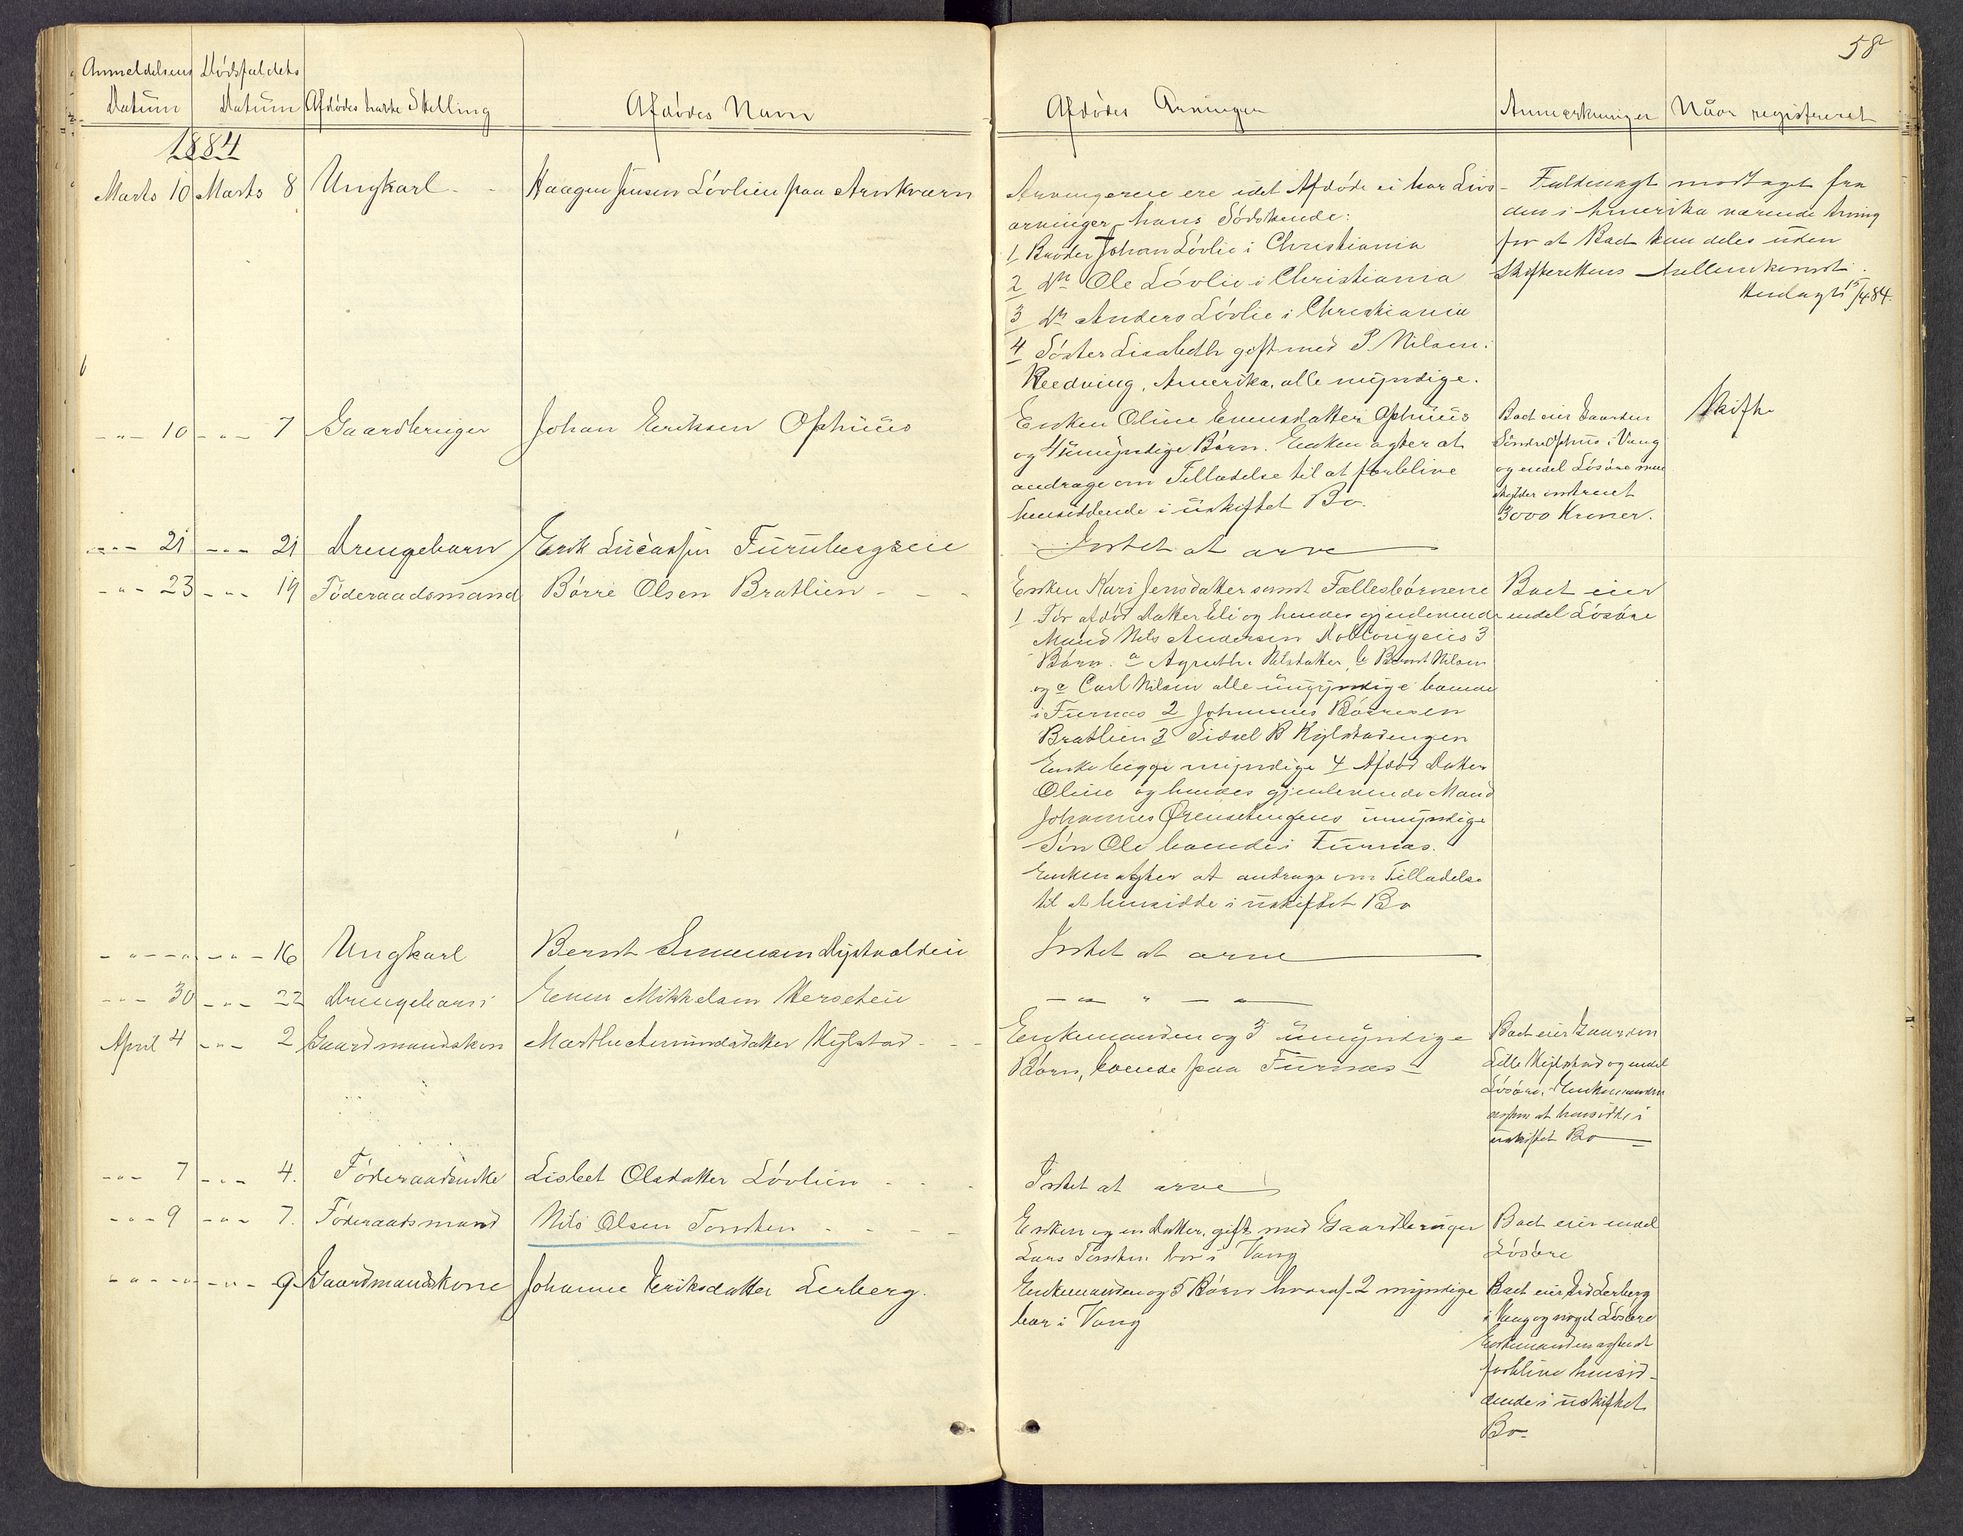 58
Anmeldelsens Datum
Dødsfaldets Datum
Afdødes havte Stelling
Afdødes Navn
Afdødes Arvinger
Anmærkninger
Naar registreret
1884
Marts 10 Marts 8 Ungkarl - - Haagen Jensen Løvlien paa Arnkværn
Arvingerne ere idet Afdøde ei har Livs-
arvinger hans Sødskende:
1 Broder Johan Løvlie i Christiania
2 Do Ole Løvlie i Christiania
3 Do Anders Løvlie i Christiania
4 Søster Lisabeth gift med P. Nilsen.
Reedving, Amerika, alle myndige.
Fuldmagt modtaget fra
den i Amerika værende Arving
for at Boet kan deles uden
Skifterettens Mellemkomst.
15/4 84.
-"- 10 -"- 7 Gaardbruger Johan Eriksen Ophuus
Enken Oline Evensdatter Ophuus
og 4 umyndige Børn. Enken agter at
andrage om Tilladelse til at forblive
hensiddende i uskiftet Bo.
Boet eier Gaarden
Søndre Ophus i Vang
og endel Løsøre men
skylder omtrent
3000 Kroner.
Skifte
-"- 21 -"- 21 Drengebarn Erik Lucassen Furubergseie
Intet at arve
-"- 23 -"- 19 Føderaadsmand Børre Olsen Bratlien - - -
Enken Kari Jensdatter samt Fællesbørnene
1 Før afdød Datter Eli og hendes gjenlevende
Mand Nils Andersen 3
Børn: a Agnethe Nilsdatter, b Bernt Nilsen
og c Carl Nilsen alle umyndige boende
i Furnæs 2 Johannes Børresen
Bratlien 3 Sidsel B Kylstadengen
Enke begge myndige 4 Afdød Datter
Oline og hendes gjenlevende Mand
Johannes umyndige
Søn Ole boende i Furnæs.
Enken agter at andrage om Tilladelse
til at hensidde i uskiftet Bo
Boet eier
endel Løsøre
-"- -"- -"- 16 Ungkarl Bernt Simensen
Intet at arve
-"- 30 -"- 22 Drengebarn Even Mikkelsen
-"- " -"-
April 4 -"- 2 Gaardmandskon Marthe Amundsdatter Kylstad - - -
Enkemanden og 3 umyndige
Børn, boende paa Furnæs -
Boet eier Gaarden
Lille Kylstad og endel
Løsøre. Enkemanden
agter at hensidde i
uskiftet Bo
-"- 7 -"- 4. Føderaadsenke Lisbet Olsdatter Løvlien - - -
Intet at arve
-"- 9 -"- 7. Føderaadsmand Nils Olsen Tomten - - -
Enken og en Datter, gift med Gaardbruger
Lars Tomten bor i Vang
Boet eier endel
Løsøre
-"- -"- -"- 9 Gaardmandskone Johanne Eriksdatter Lerberg.
Enkemanden og 5 Børn hvoraf 2 myndige
bor i Vang
Boet eier Lerberg
i Vang og noget Løsøre
Enkemanden agter at
forblive hensid-
dende i uskiftet
Bo-